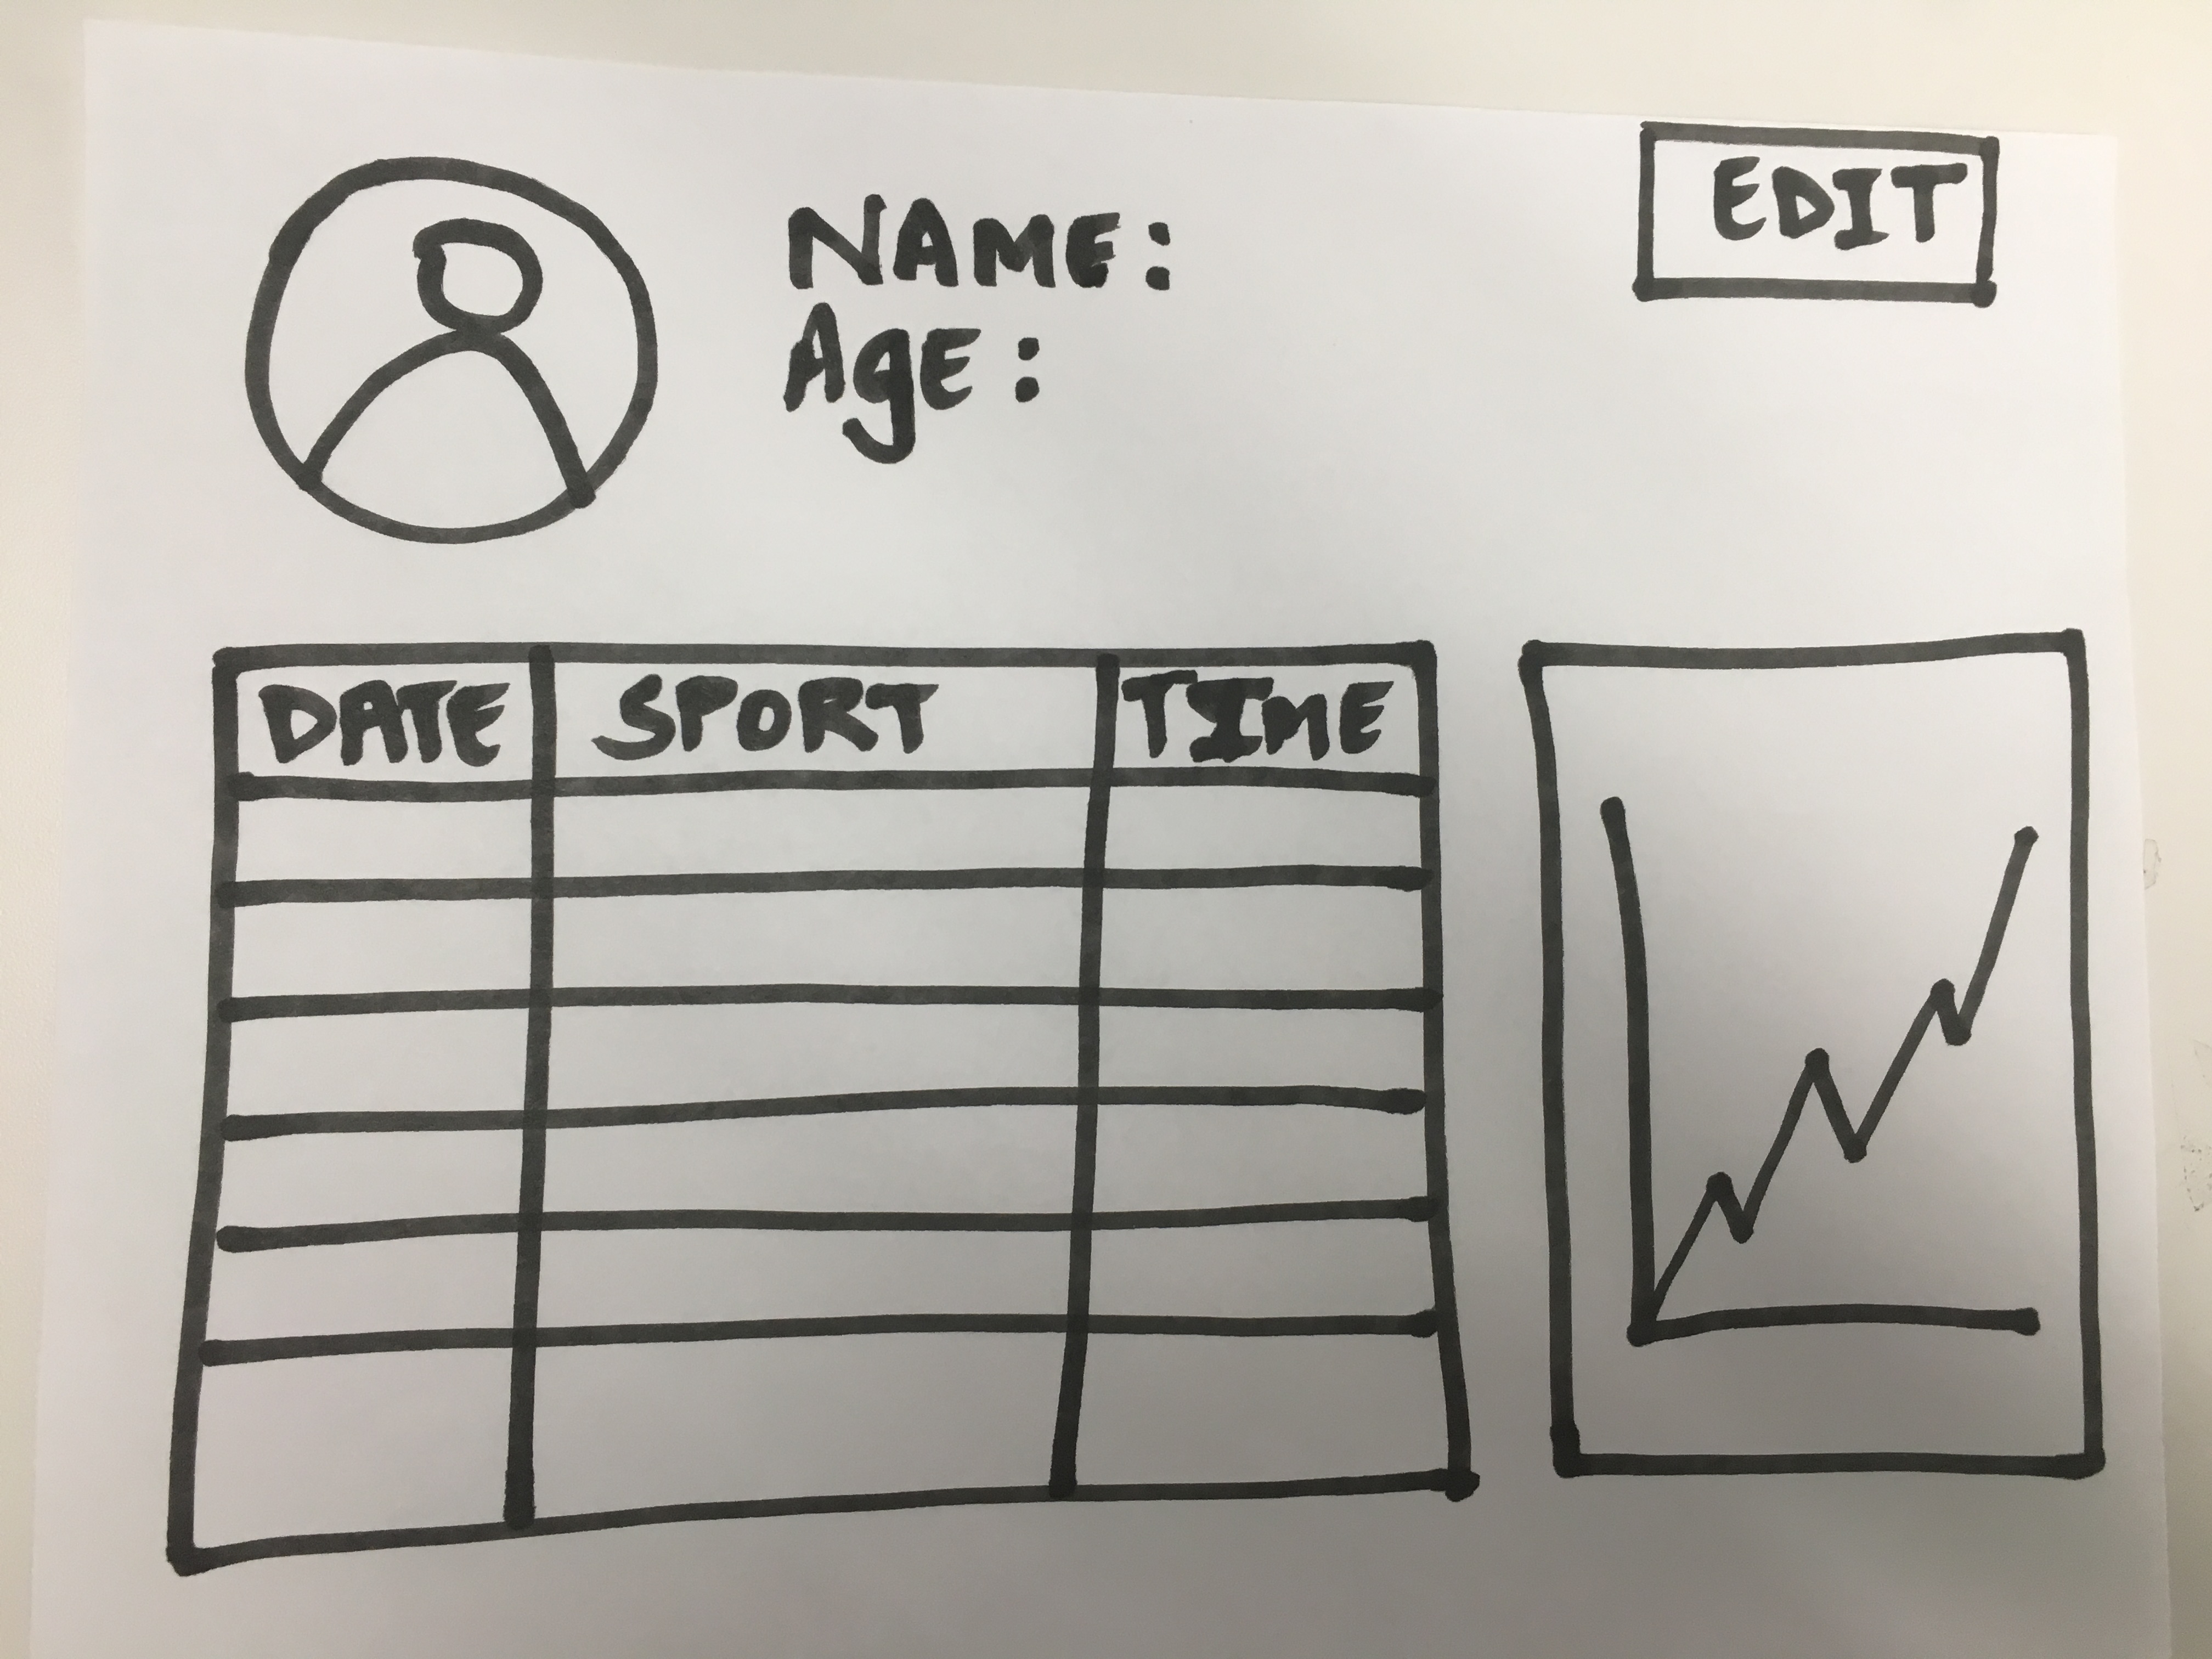 NAME:
AgE:
EDIT
DATE SPORT TIME